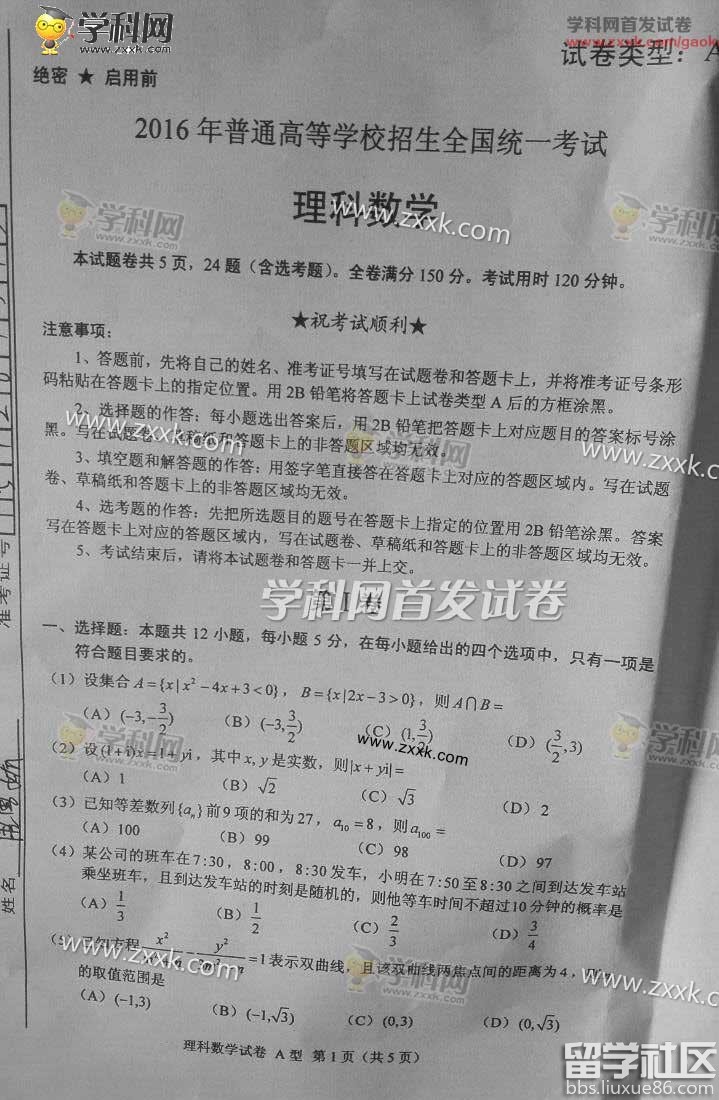 学科网
www.zxxk.com
学科网首发试卷
试卷类型：A
绝密 ★ 启用前
2016 年普通高等学校招生全国统一考试
理科数学
本试题卷共 5 页，24 题（含选考题）。全卷满分 150 分。考试用时 120 分钟。
★祝考试顺利★
注意事项：
1、答题前，先将自己的姓名、准考证号填写在试题卷和答题卡上，并将准考证号条形
码粘贴在答题卡上的指定位置。用 2B 铅笔将答题卡上试卷类型 A 后的方框涂黑。
2、选择题的作答：每小题选出答案后，用 2B 铅笔把答题卡上对应题目的答案标号涂
黑。写在试题卷、草稿纸和答题卡上的非答题区域均无效。
3、填空题和解答题的作答：用签字笔直接答在答题卡上对应的答题区域内。写在试题
卷、草稿纸和答题卡上的非答题区域均无效。
4、选考题的作答：先把所选题目的题号在答题卡上指定的位置用 2B 铅笔涂黑。答案
写在答题卡上对应的答题区域内，写在试题卷、草稿纸和答题卡上的非答题区域均无效。
5、考试结束后，请将本试题卷和答题卡一并上交。
学科网首发试卷
第 I 卷
一、选择题：本题共 12 小题，每小题 5 分，在每小题给出的四个选项中，只有一项是
符合题目要求的。
（1）设集合 A={x|x²−4x+3<0}，B={x|2x−3>0}，则 A∩B=
（A）(−3,−3/2) （B）(−3,3/2) （C）(1,3/2) （D）(3/2,3)
（2）设(1+i)x=1+yi，其中 x, y 是实数，则|x+yi|=
（A）1 （B）√2 （C）√3 （D）2
（3）已知等差数列{aₙ}前 9 项的和为 27，a₁₀=8，则 a₁₀₀=
（A）100 （B）99 （C）98 （D）97
（4）某公司的班车在 7:30，8:00，8:30 发车，小明在 7:50 至 8:30 之间到达发车站
乘坐班车，且到达发车站的时刻是随机的，则他等车时间不超过 10 分钟的概率是
（A）1/3 （B）1/2 （C）2/3 （D）3/4
（5）已知方程 x² − y² =1 表示双曲线，且该双曲线两焦点间的距离为 4，则
的取值范围是
（A）(−1,3) （B）(−1,√3) （C）(0,3) （D）(0,√3)
理科数学试卷 A 型 第 1 页（共 5 页）
准考证号
姓名
留学社区
bbs.liuxue86.com